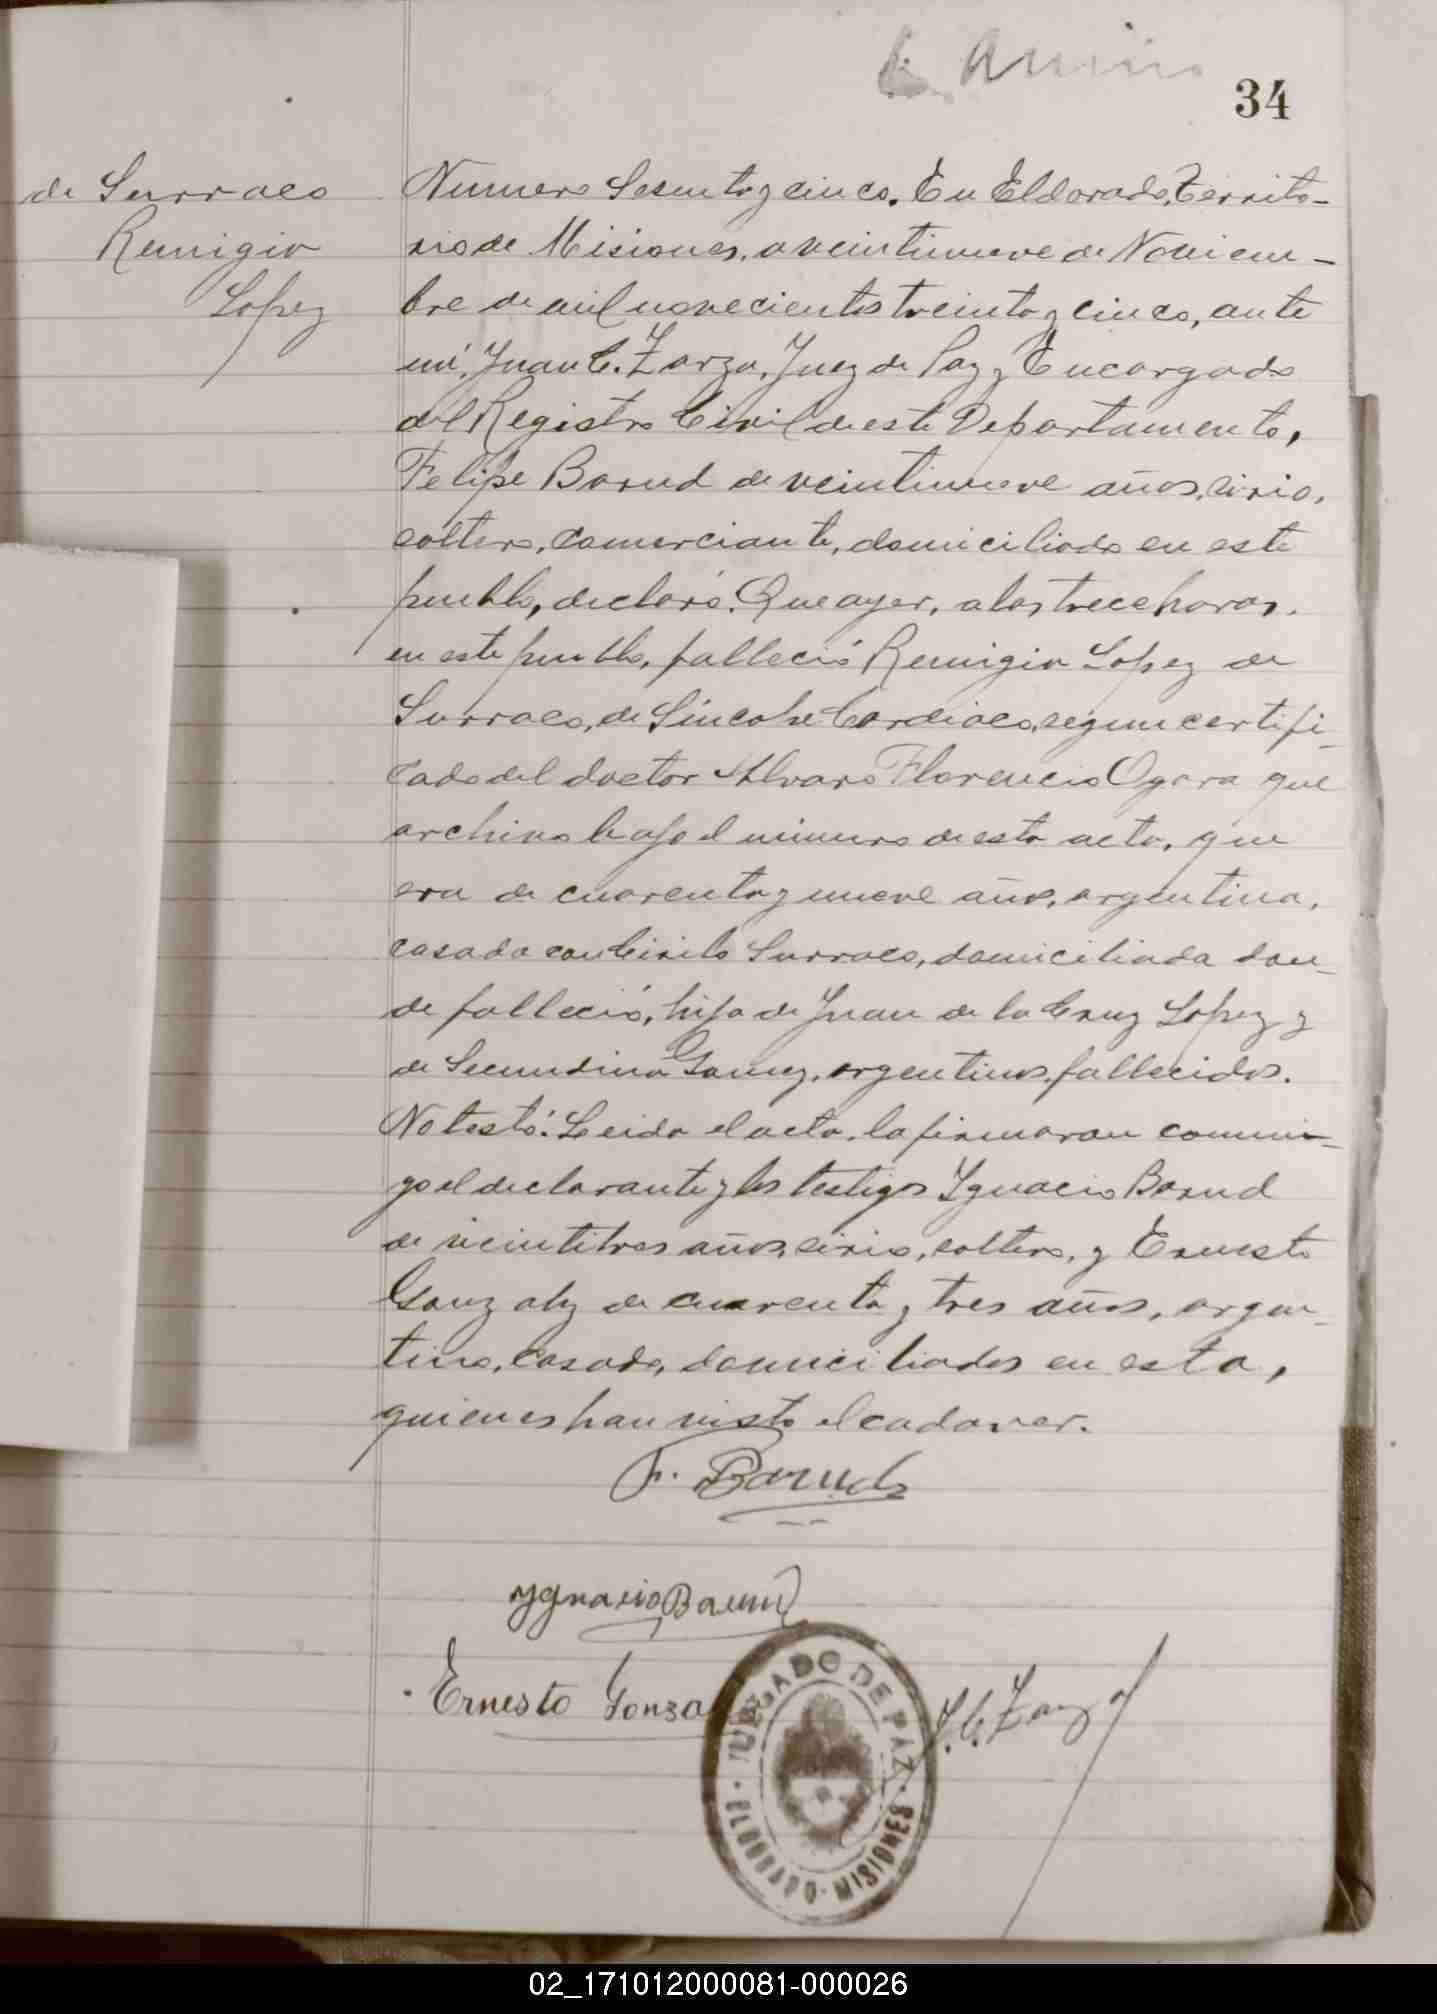 34
de Surraco
Remigia
Lopez
Numero Sesenta y cinco. En Eldorado, Territo-
rio de Misiones, a veintinueve de Noviem-
bre de mil novecientos treinta y cinco, ante
mí, Juan C. Zarza, Juez de Paz y Encargado
del Registro Civil de este Departamento,
Felipe Barud de veintinueve años, sirio,
soltero, comerciante, domiciliado en este
pueblo, declaró: Que ayer, a las trece horas,
en este pueblo, falleció Remigia Lopez de
Surraco, de Síncope Cardiaco, segun certifi-
cado del doctor Alvaro Florencio Ogara que
archivo bajo el numero de esta acta, que
era de cuarenta y nueve años, argentina,
casada con Cirilo Surraco, domiciliada don-
de falleció, hija de Juan de la Cruz Lopez y
de Secundina Gomez, argentinos, fallecidos.
No testó. Leida el acta, la firmaran conmi-
go el declarante y los testigos Ygnacio Barud
de veintitres años, sirio, soltero, y Ernesto
Gonzalez de cuarenta y tres años, argen-
tino, casado, domiciliados en esta,
quienes han visto el cadaver.
F. Barud
Ygnacio Barud
Ernesto Gonza
J. C. Zarza
JUZGADO DE PAZ
ELDORADO - MISIONES
02_171012000081-000026